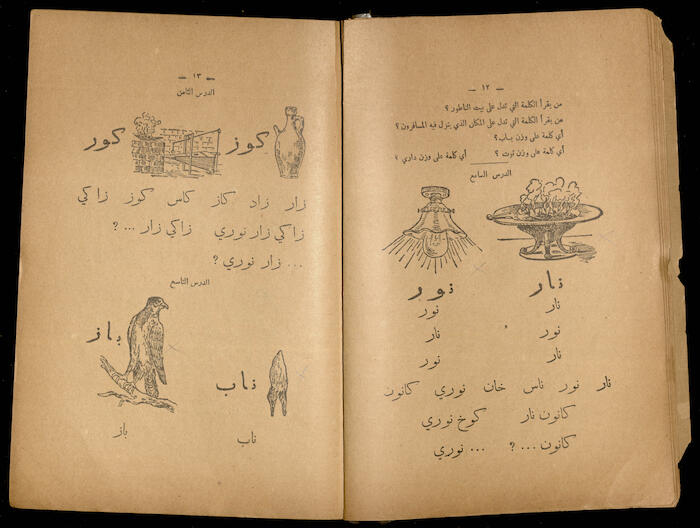 — ١٢ —
من يقرأ الكلمة التي تدل على بيت الناطور ؟
من يقرأ الكلمة التي تدل على المكان الذي ينزل فيه المسافرون ؟
أي كلمة على وزن باب ؟
أي كلمة على وزن توت ؟ أي كلمة على وزن داري ؟
الدرس السابع
نار نور
نار نور
نور نار
نار نور
نار نور ناس خان نوري كانون
كانون نار كوخ نوري
كانون ... ؟ ... نوري
— ١٣ —
الدرس الثامن
كوز كور
زار زاد كاز كاس كوز زاكي
زاكي زار نوري زاكي زار ... ؟
... زار نوري ؟
الدرس التاسع
ناب باز
ناب باز